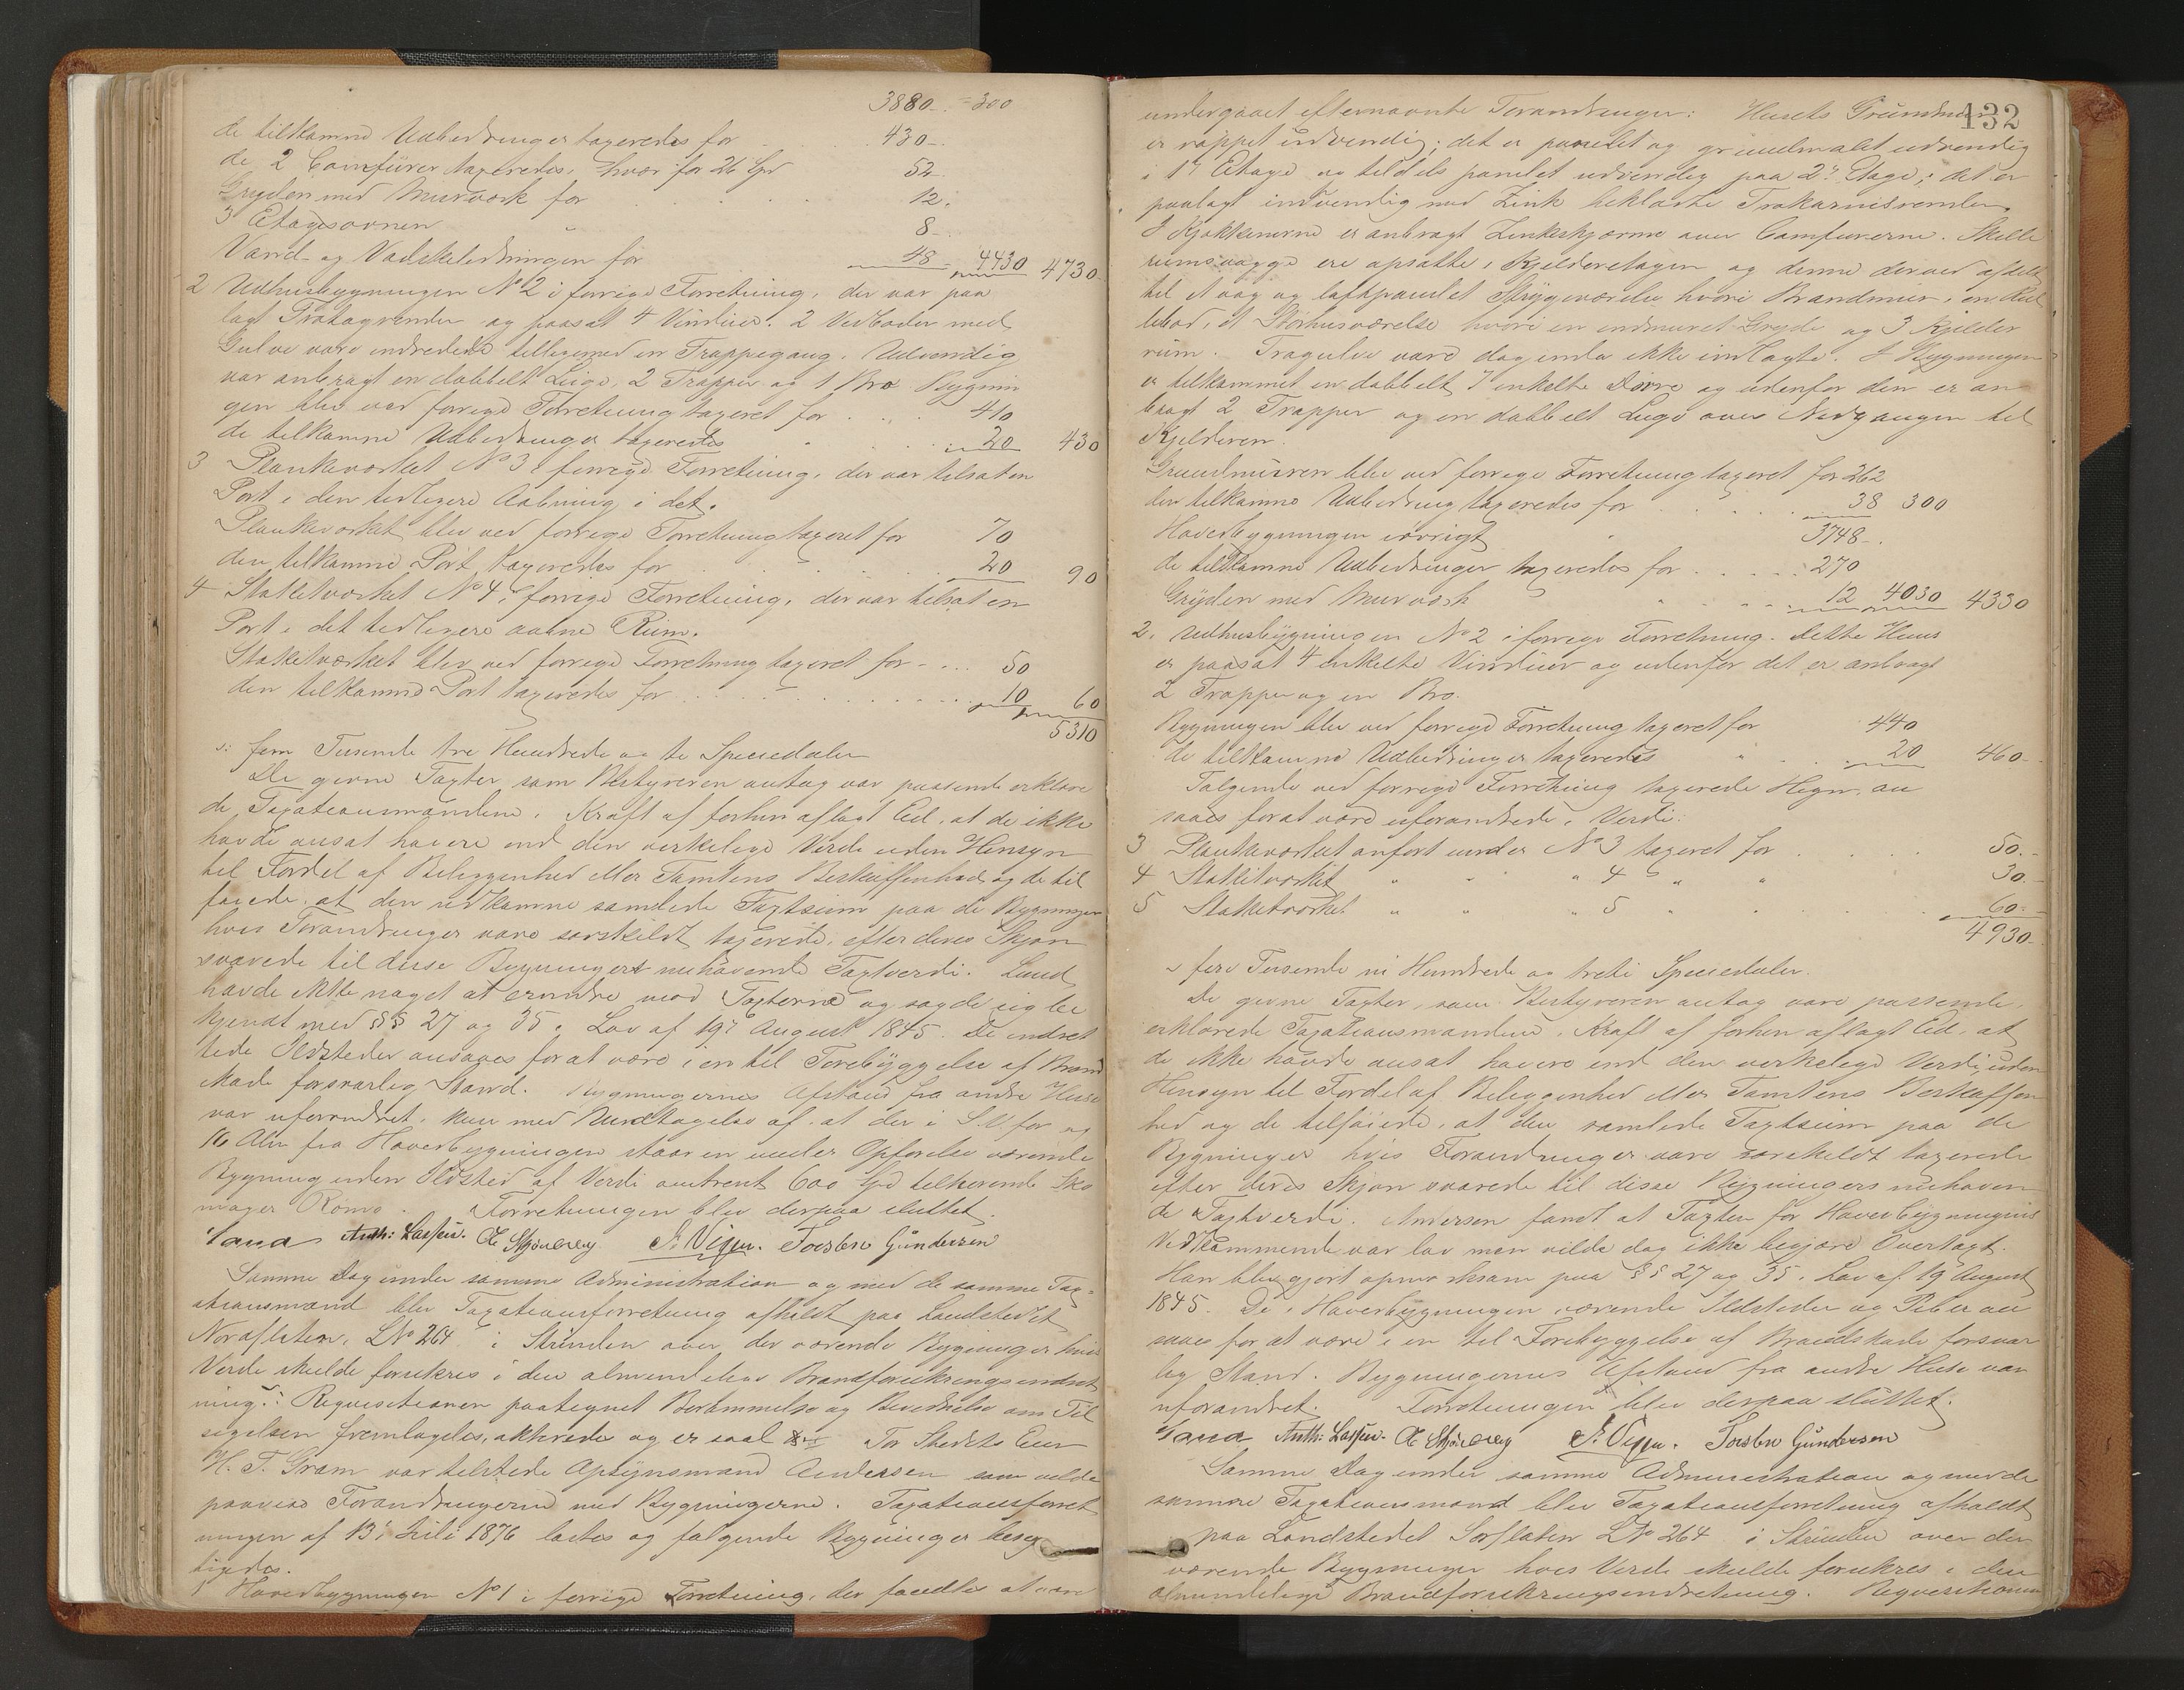 3880 - = 300
de tilkomne Udbedringer taxeredes for . . . 430 -
de 2 Comfürer taxeredes, hver for 26 Spd 52
Gryden med Murværk for . . . 12.
3 Etagesovnen " 8 -
Vand- og Vadskeledningen for 48 - 4430 4730
2 Udhusbygningen No 2 i forrige Forretning, der var paa
lagt Tratagrender og paasat 4 Vinduer. 2 Vedboder med
Gulve vare indredede tilligemed en Trappegang. Udvendig
var anbragt en dobbelt Luge, 2 Trapper og 1 Bro. Bygnin
gen blev ved forrige Forretning taxeret for . . . 410
de tilkomne Udbedringer taxeredes " . . . 20 430
3 Plankeværket No 3 i forrige Forretning, der var tilsat en
Port i den tidligere Aabning i det.
Plankeværket blev ved forrige Forretning taxeret for 70
den tilkomne Port taxeredes for . . . 20 90
4 Stakitværket No 4 i forrige Forretning, der var tilsat en
Port i det tidligere aabne Rum.
Stakitværket blev ved forrige Forretning taxeret for - . . . 50
den tilkomne Port taxeredes for . . . 10 60
5310
s: fem Tusende tre Hundrede og ti Speciedaler
De givne Taxter, som Bestyreren antog var passende erklære
de Taxationsmændene, i Kraft af forhen aflagt Eed, at de ikke
havde ansat høiere end den virkelige Værdi uden Hensyn
til Fordel af Beliggenhed eller Tomtens Beskaffenhed og de til
føiede, at den udkomne samlede Taxtsum paa de Bygninger
hvis Forandringer vare særskildt taxerede, efter deres Skjøn
svarede til disse Bygningers nuhavende Taxtværdi. Lund
havde ikke noget at erindre mod Taxterne og sagde sig be
kjendt med §§ 27 og 35 i Lov af 19de August 1845. De indret
tede Ildsteder ansaaes for at være i en til Forebyggelse af Brand
skade forsvarlig Stand. Bygningernes Afstand fra andre Huse
var uforandret, kun med Undtagelse af, at der i S.V. for og
16 Alen fra Hovedbygningen staar en under Opførelse værende
Bygning uden Ildsted af Værdi omtrent 600 Spd tilhørende Sko
mager Romo. Forretningen blev derpaa sluttet.
Anth: Lassen. Torsten Gundersen
Samme Dag under samme Administration og med de samme Tax=
ationsmænd blev Taxationsforretning afholdt paa Landstedet
Norsflaten, L No 264 i Strinden over der værende Bygninger hvis
Værdi skulde forsikres i den almindelige Brandforsikringsindret
ning. Reqvisitionen paategnet Berammelse og Bevidnelse om Til
sigelsen fremlagdes, akterede og er saal. For Stedets Eier
H. T. Gram var tilstede Opsynsmand Andersen som vilde
paavise Forandringerne ved Bygningerne. Taxationsforret
ningen af 13de Juli 1876 læstes og følgende Bygninger besig
tigedes.
1 Hovedbygningen No 1 i forrige Forretning, der fandtes at være
132
undergaaet efternævnte Forandringer: Husets Grundmur
er rappet indvendig; det er panelet og grundmalet udvendig
i 1ste Etage og tildels panelet udvendig paa 2den Etage; det er
paalagt indvendig med Zink beklædte Trækarnisrender.
I Kjøkkenerne er anbragt Zinkskjærme over Comfurerne. Skille
rumsvægge ere opsatte i Kjelderetagen og denne derved afdelt
til et væg og loftpanelet Strygeværelse hvori Brandmur, en Rul
lebod, et Størhusværelse hvori en indmuret Gryde og 3 Kjelder
rum. Trægulve vare dog endnu ikke indlagte. I Bygningen
er tilkommet en dobbelt 7 enkelte Dørre og udenfor den er an
bragt 2 Trapper og en dobbelt Luge over Nedgangen til
Kjelderen.
Grundmuren blev ved forrige Forretning taxeret for 262
den tilkomne Udbedring taxeredes for . . . 38 300
Hovedbygningen iøvrigt " 3748 -
de tilkomne Udbedringer taxeredes for . . . 270
Gryden med Murværk " . . . 12 4030 4330
2. Udhusbygningen No 2 i forrige Forretning. Dette Huus
er paasat 4 enkelte Vinduer og udenfor det er anbragt
2 Trapper og en Bro.
Bygningen blev ved forrige Forretning taxeret for 440
de tilkomne Udbedringer taxeredes " . . 20 460 -
Følgende ved forrige Forretning taxerede Hegn, an
saaes for at være uforandrede i Værdi:
3 Plankeværket anført under No 3 taxeret for . . . 50. -
4 Stakitværket " " " 4 " " 30. -
5 Stakitværket " " " 5 " . . . 60 -
4930 -
s: fire Tusende ni Hundrede og treti Speciedaler.
De givne Taxter, som Bestyreren antog vare passende,
erklærede Taxationsmændene, i Kraft af forhen aflagt Eed, at
de ikke havde ansat høiere end den virkelige Værdi, uden
Hensyn til Fordel af Beliggenhed eller Tomtens Beskaffen
hed og de tilføiede, at den samlede Taxtsum paa de
Bygninger hvis Forandringer vare særskildt taxerede
efter deres Skjøn svarede til disse Bygningers nuhaven
de Taxtværdi. Andersen fandt at Taxten for Hovedbygningens
Vedkommende var lav men vilde dog ikke begjære Overtaxt.
Han blev gjort opmærksom paa §§ 27 og 35 i Lov af 19 August
1845. De i Hovedbygningen værende Ildsteder og Piber an
saaes for at være i en til Forebyggelse af Brandskade forsvar
lig Stand. Bygningernes Afstand fra andre Huse var
uforandret. Forretningen blev derpaa sluttet.
Anth: Lassen. Torsten Gundersen
Samme Dag under samme Administration og med de
samme Taxationsmænd blev Taxationsforretning afholdt
paa Landstedet Sørflaten L No 264 i Strinden over der
værende Bygninger hvis Værdi skulde forsikres i den
almindelige Brandforsikringsindretning. Reqvisitionen